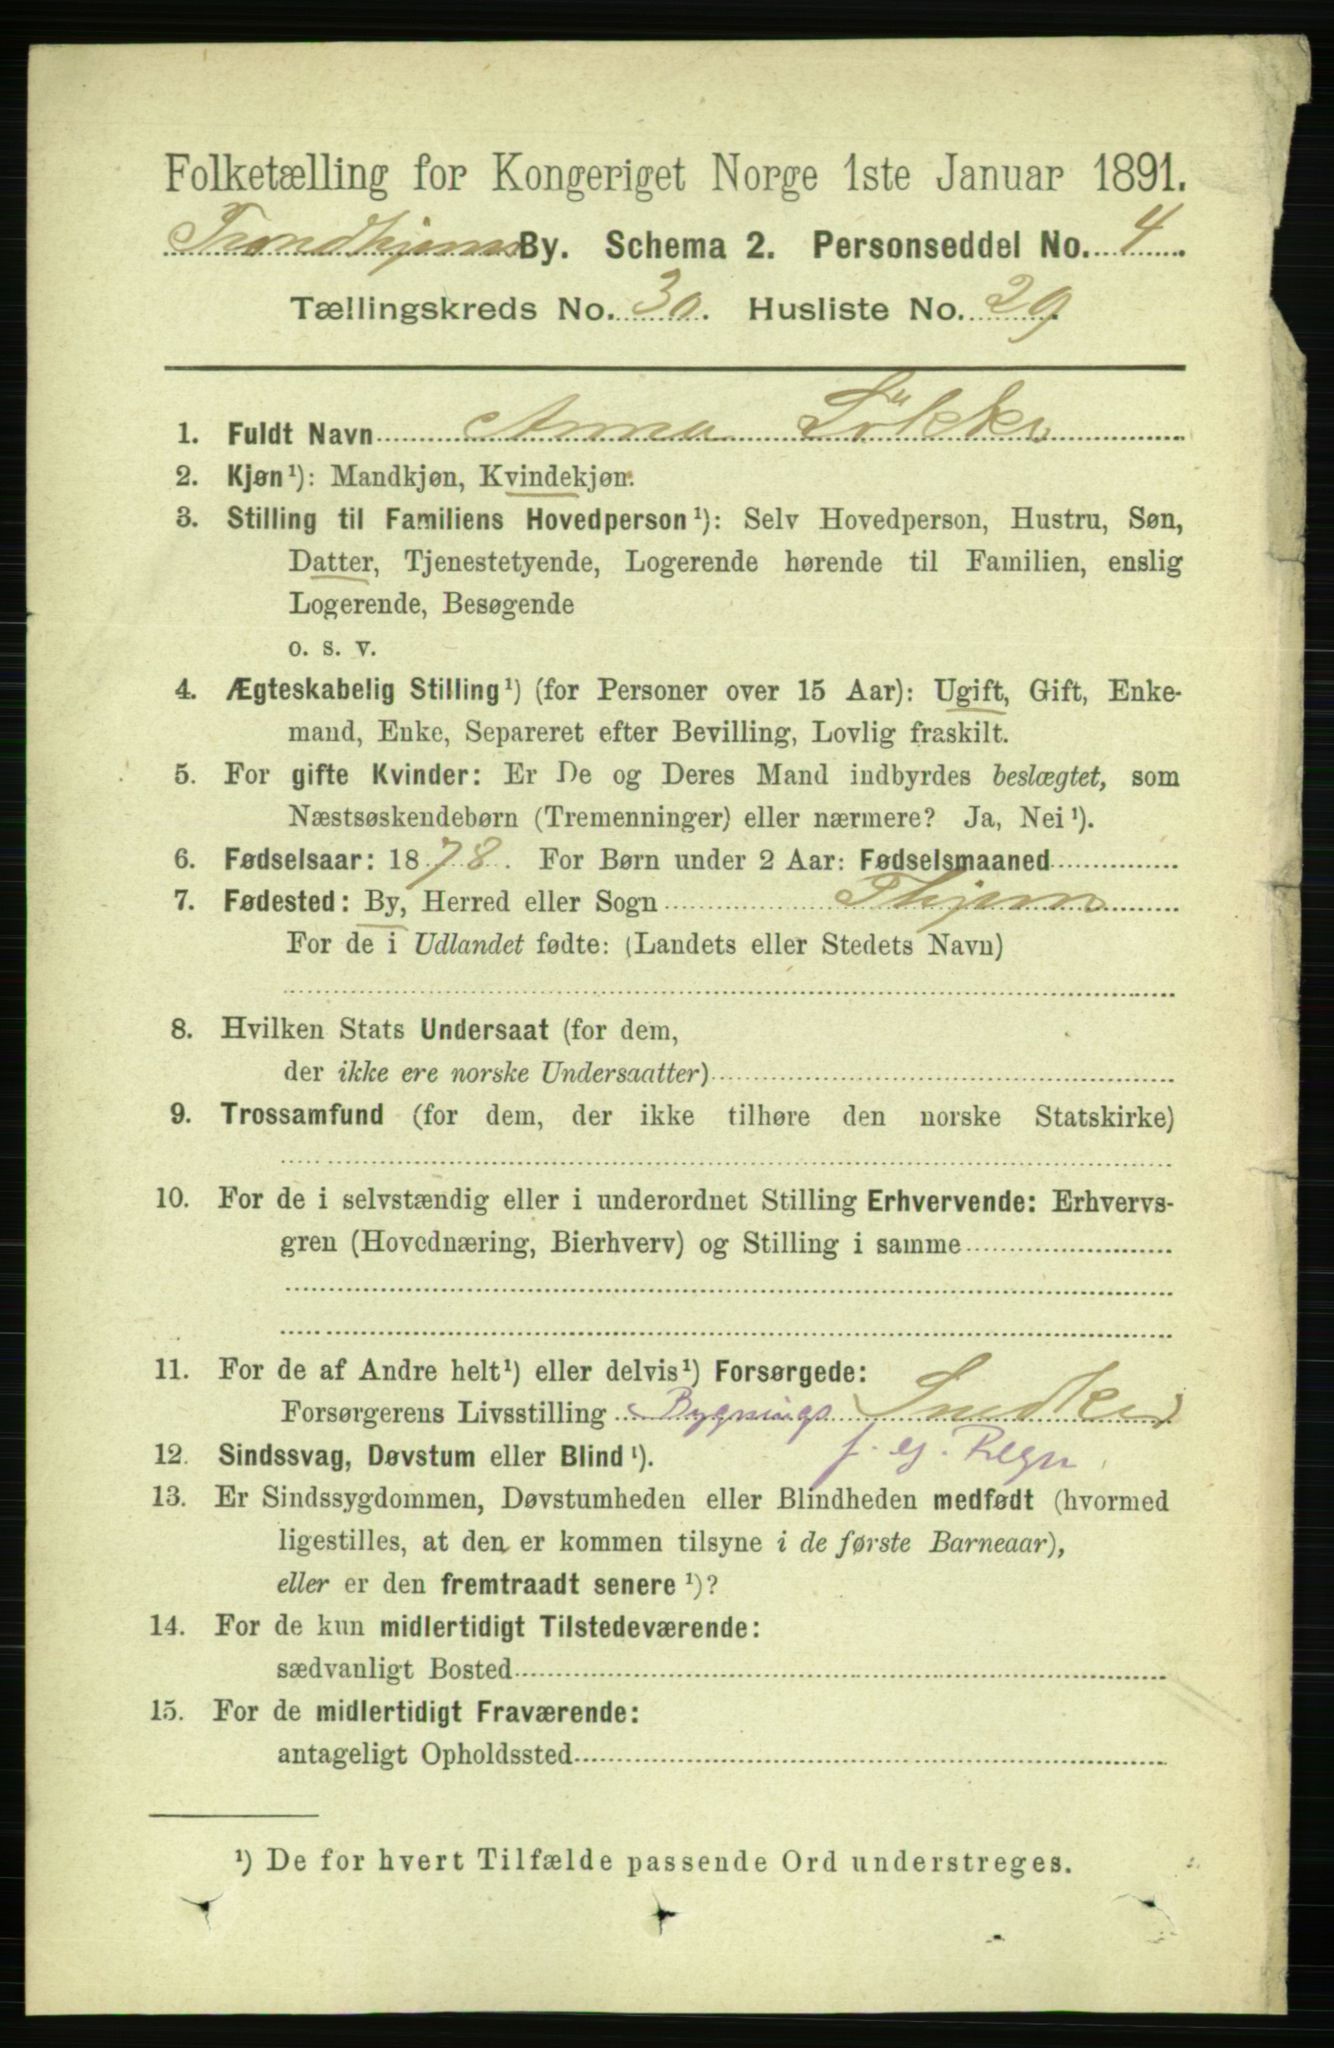 Folketælling for Kongeriget Norge 1ste Januar 1891.
Trondhjems By. Schema 2. Personseddel No. 4
Tællingskreds No. 30. Husliste No. 29.
1. Fuldt Navn Anna Lökke
2. Kjøn¹): Mandkjøn, Kvindekjøn.
3. Stilling til Familiens Hovedperson¹): Selv Hovedperson, Hustru, Søn,
Datter, Tjenestetyende, Logerende hørende til Familien, enslig
Logerende, Besøgende
o. s. v.
4. Ægteskabelig Stilling¹) (for Personer over 15 Aar): Ugift, Gift, Enke-
mand, Enke, Separeret efter Bevilling, Lovlig fraskilt.
5. For gifte Kvinder: Er De og Deres Mand indbyrdes beslægtet, som
Næstsøskendebørn (Tremenninger) eller nærmere? Ja, Nei¹).
6. Fødselsaar: 1878. For Børn under 2 Aar: Fødselsmaaned
7. Fødested: By, Herred eller Sogn Thjem
For de i Udlandet fødte: (Landets eller Stedets Navn)
8. Hvilken Stats Undersaat (for dem,
der ikke ere norske Undersaatter)
9. Trossamfund (for dem, der ikke tilhøre den norske Statskirke)
10. For de i selvstændig eller i underordnet Stilling Erhvervende: Erhvervs-
gren (Hovednæring, Bierhverv) og Stilling i samme
11. For de af Andre helt¹) eller delvis¹) Forsørgede:
Forsørgerens Livsstilling Bygnings Snedker
f. eg. Regn
12. Sindssvag, Døvstum eller Blind¹).
13. Er Sindssygdommen, Døvstumheden eller Blindheden medfødt (hvormed
ligestilles, at den er kommen tilsyne i de første Barneaar),
eller er den fremtraadt senere¹)?
14. For de kun midlertidigt Tilstedeværende:
sædvanligt Bosted
15. For de midlertidigt Fraværende:
antageligt Opholdssted
¹) De for hvert Tilfælde passende Ord understreges.